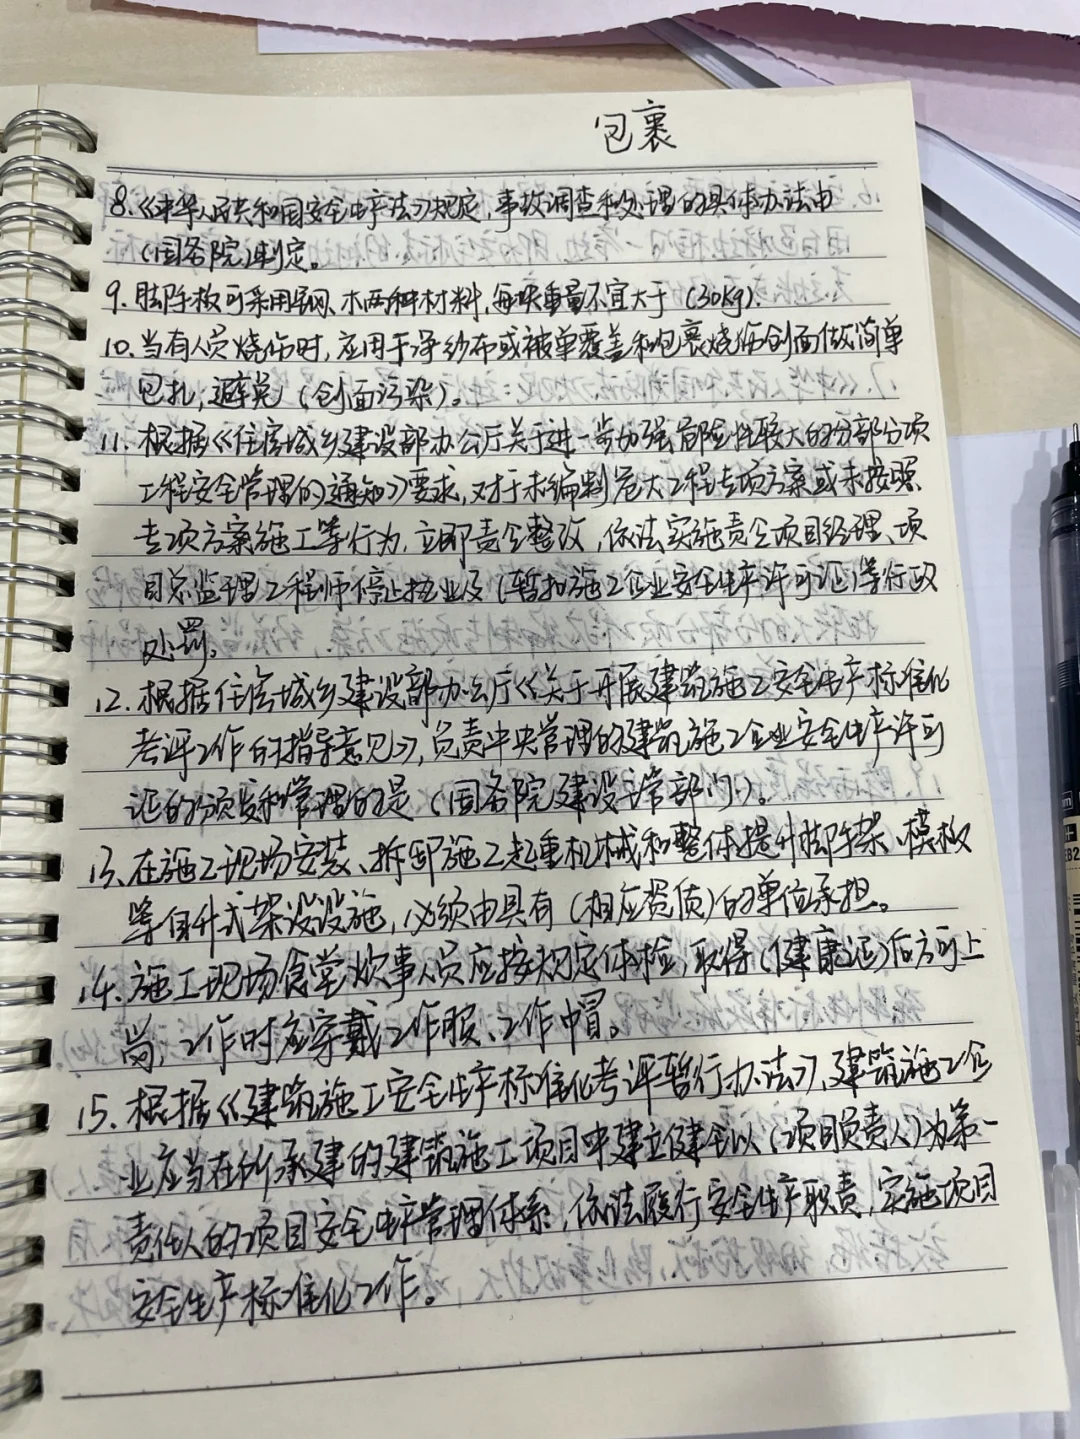 包裹
8.《中华人民共和国安全生产法》规定,事故调查和处理的具体办法由
(国务院)制定。
9.脚阵板可采用钢、木两种材料,每块重量不宜大于(30kg).
10.当有人员烧伤时,应用干净纱布或被单覆盖和包裹烧伤创面做简单
包扎,避免(创面污染)。
11.根据《住房城乡建设部办公厅关于进一步加强危险性较大的分部分项
工程安全管理的通知》要求,对于未编制危大工程专项方案或未按照
专项方案施工等行为,立即责令整改,依法实施责令项目经理、项
目总监理工程师停止执业及(暂扣施工企业安全生产许可证)等行政
处罚。
12.根据住房城乡建设部办公厅《关于开展建筑施工安全生产标准化
考评工作的指导意见》,负责中央管理的建筑施工企业安全生产许可
证的颁发和管理的是(国务院建设主管部门)。
13、在施工现场安装、拆卸施工起重机械和整体提升脚阵架、模板
等自升式架设设施,必须由具有(相应资质)的单位承担。
14.施工现场食堂炊事人员应按规定体检,取得(健康证)后方可上
岗,工作时应穿戴工作服、工作帽。
15.根据《建筑施工安全生产标准化考评暂行办法》,建筑施工企
业应当在所承建的建筑施工项目中建立健全以(项目负责人)为第一
责任人的项目安全生产管理体系,依法履行安全生产职责,实施项目
安全生产标准化工作。